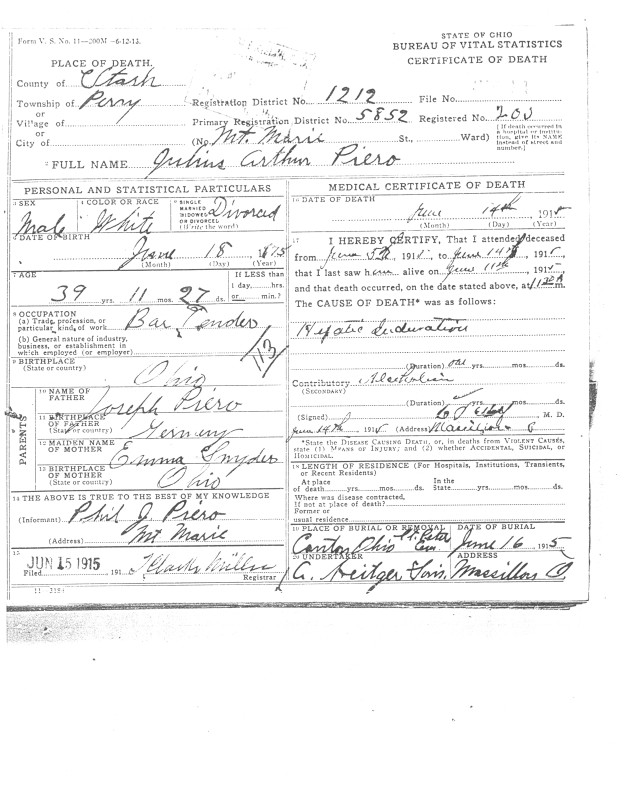 Form V. S. No. 11—200M—6-12-14.
STATE OF OHIO
BUREAU OF VITAL STATISTICS
CERTIFICATE OF DEATH
PLACE OF DEATH.
County of Stark
Township of Perry
or
Village of
or
City of
Registration District No. 1212 File No.
Primary Registration District No. 5852 Registered No. 200
(No. Mt. Marie St., Ward)
[If death occurred in a hospital or institution, give its NAME instead of street and number.]
2 FULL NAME Julius Arthur Piero
PERSONAL AND STATISTICAL PARTICULARS
3 SEX
Male
4 COLOR OR RACE
White
5 SINGLE
MARRIED
WIDOWED
OR DIVORCED
(Write the word)
Divorced
6 DATE OF BIRTH
June 18 1875
(Month) (Day) (Year)
7 AGE
39 yrs. 11 mos. 27 ds.
If LESS than
1 day, hrs.
or min.?
8 OCCUPATION
(a) Trade, profession, or
particular kind of work Bar Tender
(b) General nature of industry,
business, or establishment in
which employed (or employer)
113
9 BIRTHPLACE
(State or country)
Ohio
PARENTS
10 NAME OF
FATHER
Joseph Piero
11 BIRTHPLACE
OF FATHER
(State or country)
Germany
12 MAIDEN NAME
OF MOTHER
Emma Snyder
13 BIRTHPLACE
OF MOTHER
(State or country)
Ohio
14 THE ABOVE IS TRUE TO THE BEST OF MY KNOWLEDGE
(Informant) Phil J. Piero
(Address) Mt Marie
15
JUN 15 1915
Filed 191
Registrar
11 3184
MEDICAL CERTIFICATE OF DEATH
16 DATE OF DEATH
June 14th 1915
(Month) (Day) (Year)
17 I HEREBY CERTIFY, That I attended deceased
from June 5th 1915, to June 14th, 1915,
that I last saw him alive on June 11th 1915,
and that death occurred, on the date stated above, at m.
The CAUSE OF DEATH* was as follows:
Hepatic Induration
(Duration) one yrs. mos. ds.
Contributory Alcoholism
(SECONDARY)
(Duration) yrs. mos. ds.
(Signed) M. D.
June 14th, 1915 (Address) Massillon O
*State the DISEASE CAUSING DEATH, or, in deaths from VIOLENT CAUSES,
state (1) MEANS OF INJURY; and (2) whether ACCIDENTAL, SUICIDAL, or
HOMICIDAL.
18 LENGTH OF RESIDENCE (For Hospitals, Institutions, Transients,
or Recent Residents)
At place
of death yrs. mos. ds.
In the
State yrs. mos. ds.
Where was disease contracted,
If not at place of death?
Former or
usual residence
19 PLACE OF BURIAL OR REMOVAL
Canton Ohio St Peter Cem
DATE OF BURIAL
June 16 1915
20 UNDERTAKER
A. Heitger Sons,
ADDRESS
Massillon O.